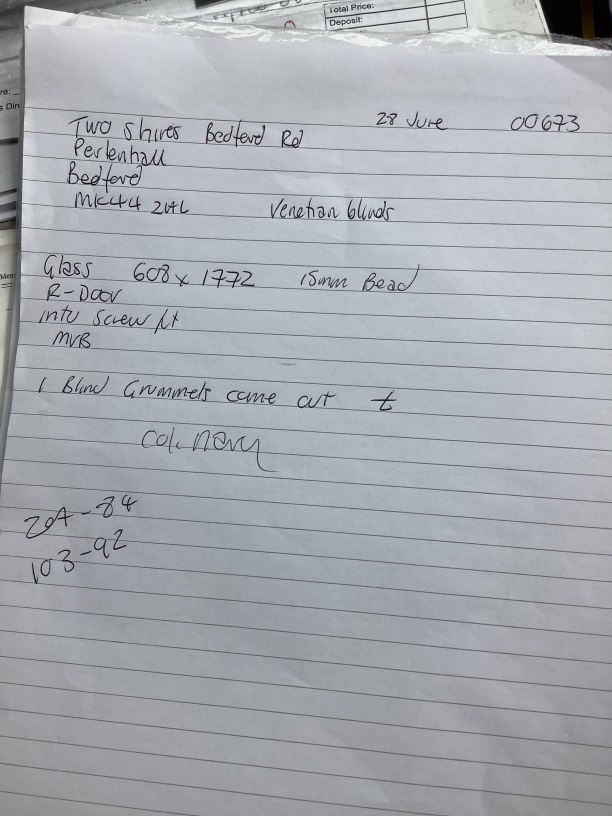 Total Price:
Deposit:
28 June 00673
Two Shires Bedford Rd
Pertenhall
Bedford
MK44 2
Venetian blinds
Glass 608 x 1772 15mm Bead
R-Door
into screw fit
MVB
1 Blind Grummets came out t
col. navy
204-84
103-92